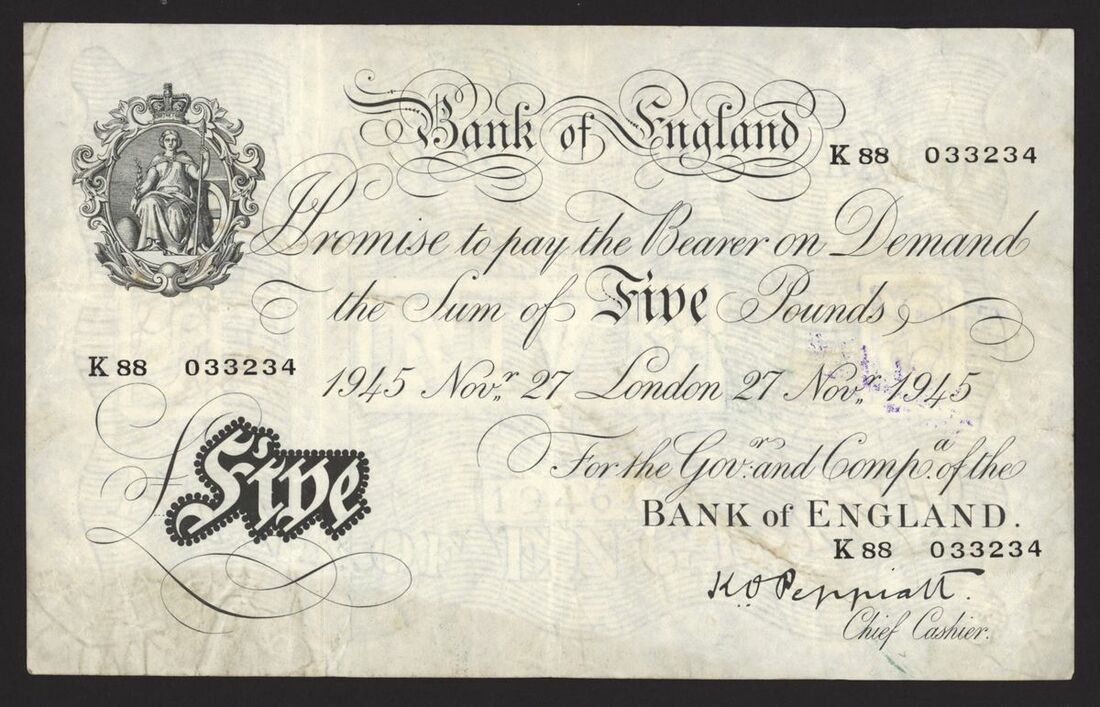 Bank of England
K 88 033234
I Promise to pay the Bearer on Demand
the Sum of Five Pounds
K 88 033234
1945 Novr. 27 London 27 Novr. 1945
Five
For the Govr. and Compa. of the
BANK of ENGLAND.
K 88 033234
K O Peppiatt.
Chief Cashier.